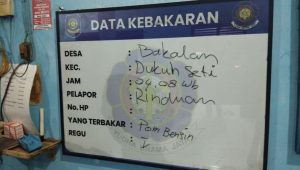 DATA KEBAKARAN
DESA : Bakalan
KEC. : Dukuh Seti
JAM : 04.08 Wib
PELAPOR : Rinduan
No. HP :
YANG TERBAKAR : Pom Bensin
REGU : I